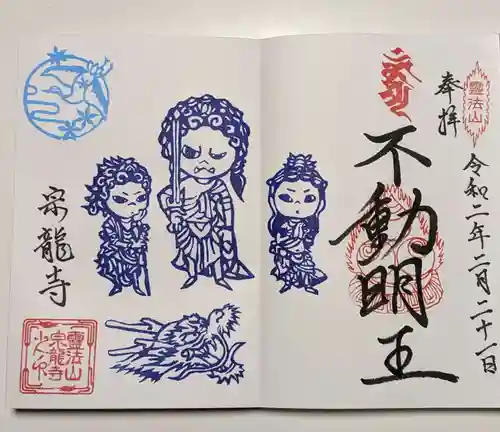 奉拝
靈法山
令和二年二月二十一日
不動明王
宗龍寺
靈法山
宗龍寺